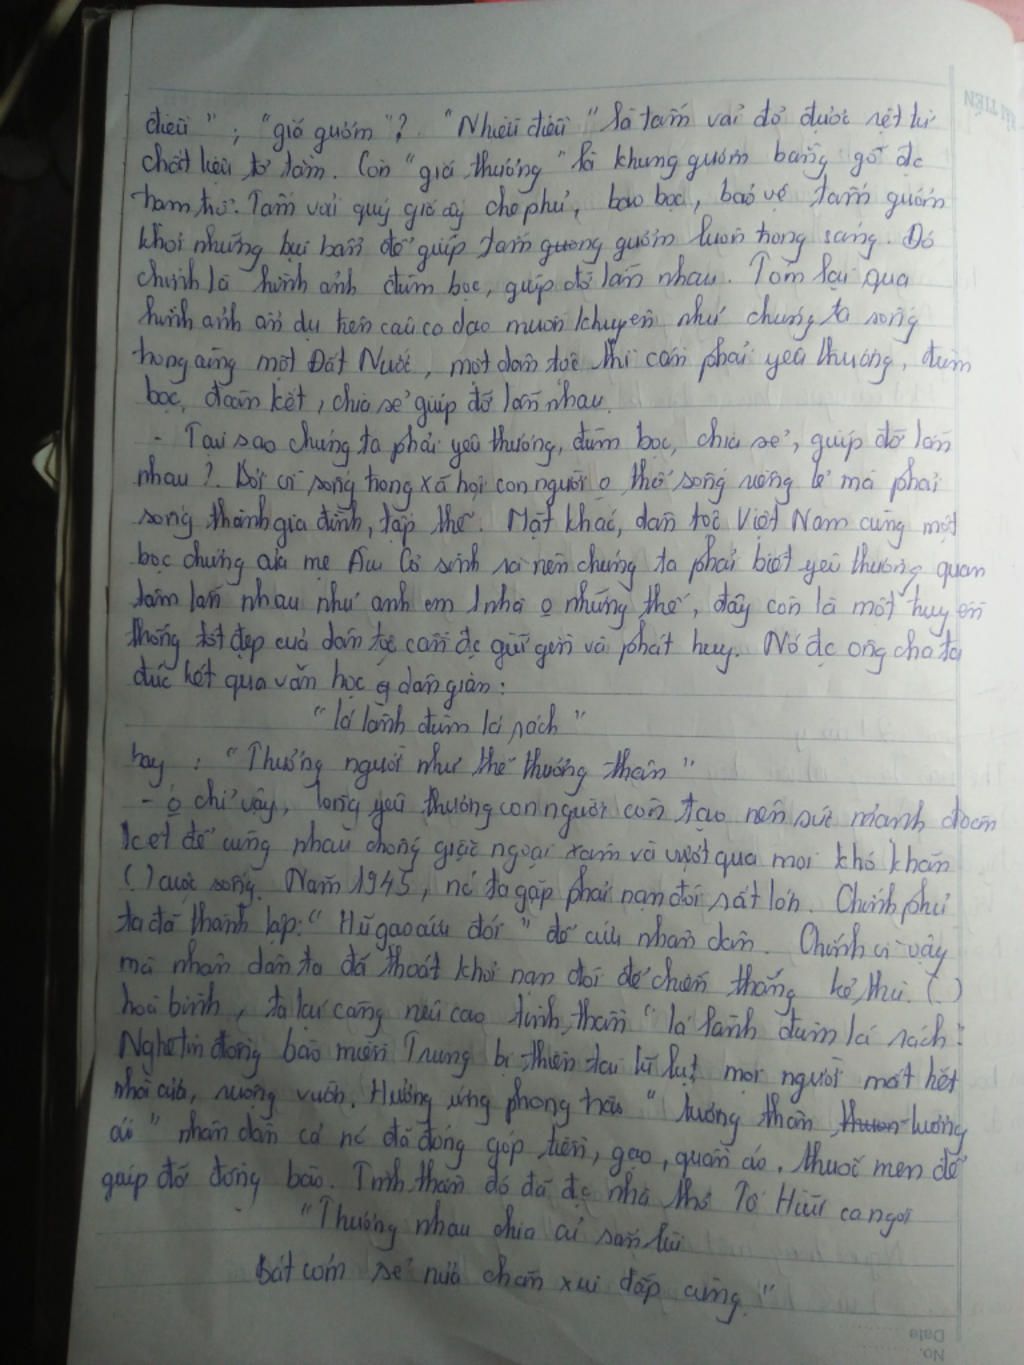 điều" ; "giá gương"? "Nhiễu điều" là tấm vải đỏ được dệt từ
chất liệu tơ tằm. Còn "giá thương" là khung gương bằng gỗ đc
trạm trổ. Tấm vải quý giá ấy che phủ, bao bọc, bảo vệ tấm gương
khỏi những bụi bẩn để giúp tấm gương gương luôn trong sáng. Đó
chính là hình ảnh đùm bọc, giúp đỡ lẫn nhau. Tóm lại qua
hình ảnh ẩn dụ trên câu ca dao muốn khuyên như chúng ta sống
trong cùng một Đất Nước, một dân tộc thì cần phải yêu thương, đùm
bọc, đoàn kết, chia sẻ giúp đỡ lẫn nhau.
- Tại sao chúng ta phải yêu thương, đùm bọc, chia sẻ, giúp đỡ lẫn
nhau? Bởi vì sống trong xã hội con người o thể sống riêng lẻ mà phải
sống thành gia đình, tập thể. Mặt khác, dân tộc Việt Nam cùng một
bọc chứng của mẹ Âu Cơ sinh ra nên chúng ta phải biết yêu thương quan
tâm lẫn nhau như anh em 1 nhà o những thế, đây còn là một truyền
thống tốt đẹp của dân tộc cần đc giữ gìn và phát huy. Nó đc ông cha ta
đúc kết qua văn học dân gian:
"lá lành đùm lá rách"
hay : "Thương người như thể thương thân"
- o chỉ vậy, lòng yêu thương con người còn tạo nên sức mạnh đoàn
kết để cùng nhau chống giặc ngoại xâm và vượt qua mọi khó khăn
( ) cuộc sống. Năm 1945, nc ta gặp phải nạn đói rất lớn. Chính phủ
ta đã thành lập: "Hũ gạo cứu đói" để cứu nhân dân. Chính vì vậy
mà nhân dân ta đã thoát khỏi nạn đói để chiến thắng kẻ thù. (.)
hoà bình, ta lại càng nêu cao tinh thần "lá lành đùm lá rách".
Nghe tin đồng bào miền Trung bị thiên tai lũ lụt mọi người mất hết
nhà cửa, ruộng vườn. Hưởng ứng phong trào "tương thân thươn tương
ái" nhân dân cả nc đã đóng góp tiền, gạo, quần áo, thuốc men để
giúp đỡ đồng bào. Tinh thần đó đã đc nhà thơ Tố Hữu ca ngợi
"Thương nhau chia củ sắn lùi
Bát cơm sẻ nửa chăn xui đắp cùng"
No.
Date